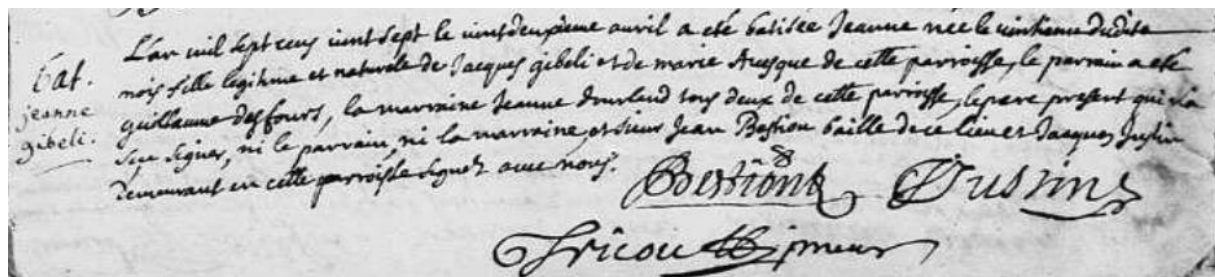 bat.
jeanne
gibeli.
L'an mil sept cens vint sept le vint deuxieme avril a eté batisée Jeanne née le vintieme dudit
mois fille legitime et naturele de Jacques gibeli et de marie Auesque de cette parroisse, le parrain a eté
guillaume desfours, la marraine Jeanne dourland tous deux de cette parroisse, le pere present qui n'a
sceu signer, ni le parrain, ni la marraine, et sieurs Jean Bestion baille de ce lieu et Jacques Justin
demeurant en cette parroisse signez avec nous.
Bestion Justin
Tricou prieur